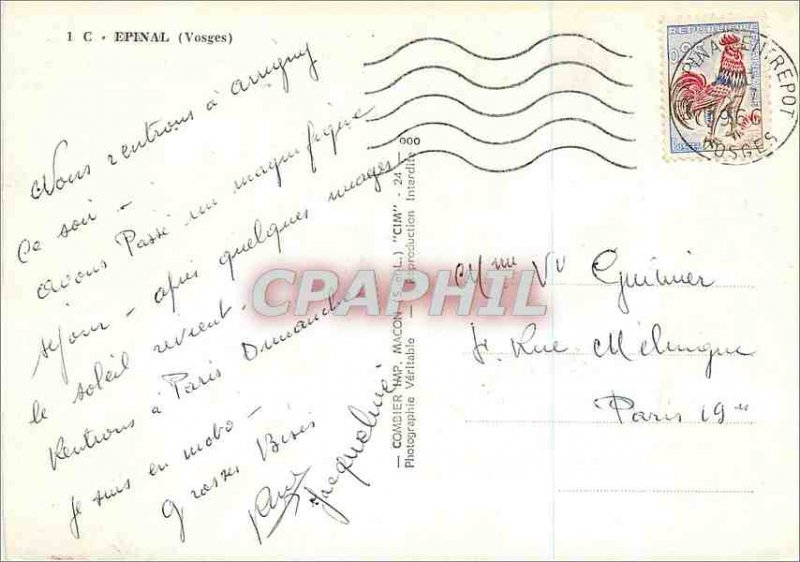 1 C - EPINAL (Vosges)
Nous rentrons à Arrigny
Ce soir -
avons Passé un magnifique
séjour - après quelques nuages!
le soleil revient.
Rentrons à Paris Dimanche
je suis en moto -
grosses Bises
Jacqueline
COMBIER IMP. MACON (S.-et-L.) "CIM" - 24
Photographie Véritable — Reproduction Interdite
000
REPUBLIQUE
EPINAL ENTREPOT
VOSGES
Mme Vve
Rue Mélingue
Paris 19e
CPAPHIL